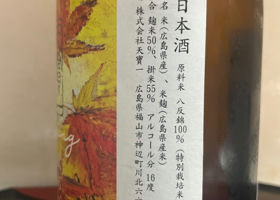 日本酒
原料米 八反錦100% (特別栽培米
名 米(広島県産)、米麹(広島県産米)
合 麹米50%、掛米55% アルコール分 16度
株式会社天寶一 広島県福山市神辺町川北六